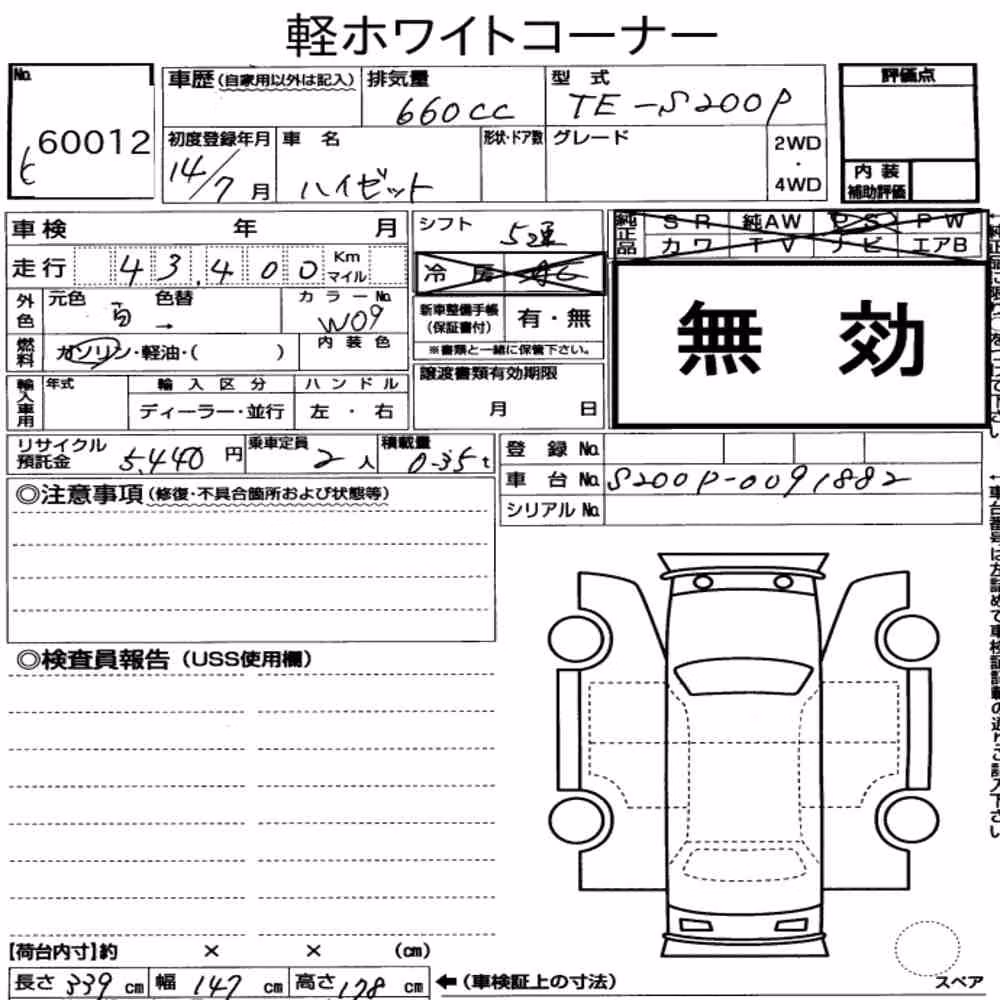 軽ホワイトコーナー
No. 60012 ヒ
車歴(自家用以外は記入) 排気量 660cc 型式 TE-S200P
評価点
初度登録年月 14/7月 車名 ハイゼット 形状・ドア数 グレード 2WD・4WD
内装補助評価
車検 年 月 シフト 5速
純正品 SR 純AW PS PW
カワ TV ナビ エアB
走行 43,400 Km マイル 冷房
無効
外色 元色 白 色替 → カラーNo. W09
新車整備手帳(保証書付) 有・無
※書類と一緒に保管下さい。
燃料 ガソリン・軽油・( ) 内装色
譲渡書類有効期限 月 日
輸入車用 年式 輸入区分 ハンドル
ディーラー・並行 左・右
リサイクル預託金 5,440円 乗車定員 2人 積載量 0.35t
登録No.
車台No. S200P-0091882
シリアルNo.
◎注意事項(修復・不具合箇所および状態等)
◎検査員報告(USS使用欄)
【荷台内寸】約 × × (cm)
長さ 339 cm 幅 147 cm 高さ 178 cm ←(車検証上の寸法)
スペア
←車台番号は左詰めで車検証記載の通りご記入下さい